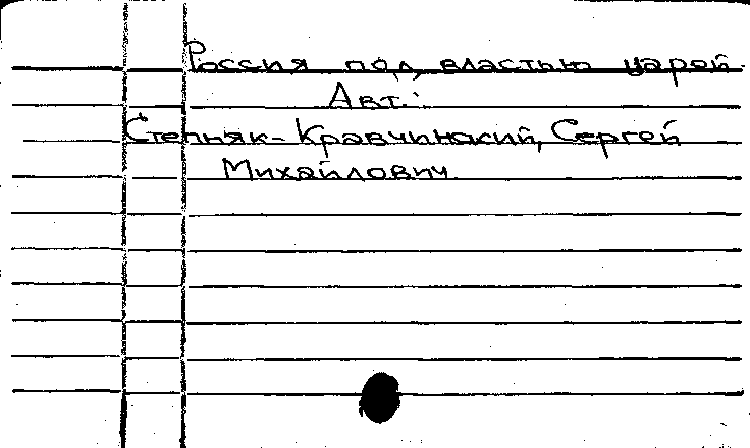 Россия под властью царей.
Авт.:
Степняк-Кравчинский, Сергей
Михайлович.